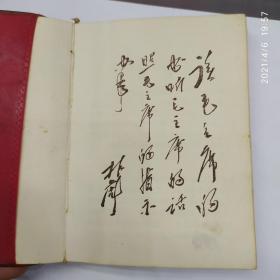 读毛主席的
书听毛主席的话
照毛主席的指示
办事
林彪
2021/4/6 19:56